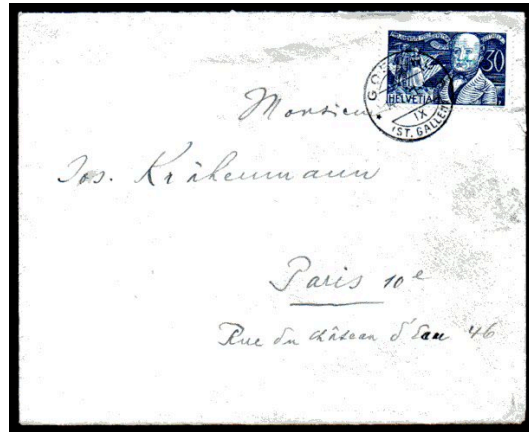 30
HELVETIA
IX
(ST. GALLEN)
Monsieur
Jos. Krähenmann
Paris 10e
Rue du château d'Eau 46